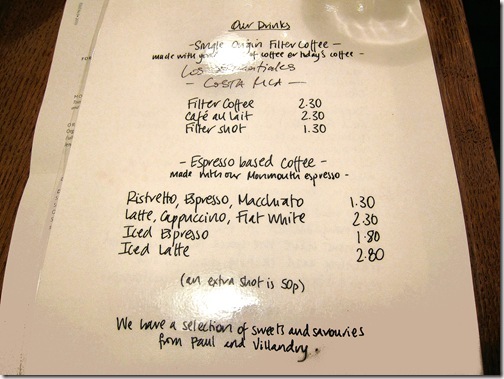 Our Drinks
- Single Origin Filter Coffee -
made with your of coffee or today's coffee -
Los
- COSTA RICA -
Filter Coffee 2.30
Café au lait 2.30
Filter shot 1.30
- Espresso based coffee -
made with our Monmouth espresso -
Ristretto, Espresso, Macchiato 1.30
Latte, Cappuccino, Flat White 2.30
Iced Espresso 1.80
Iced Latte 2.80
(an extra shot is 50p)
We have a selection of sweets and savouries
from Paul and Villandry.